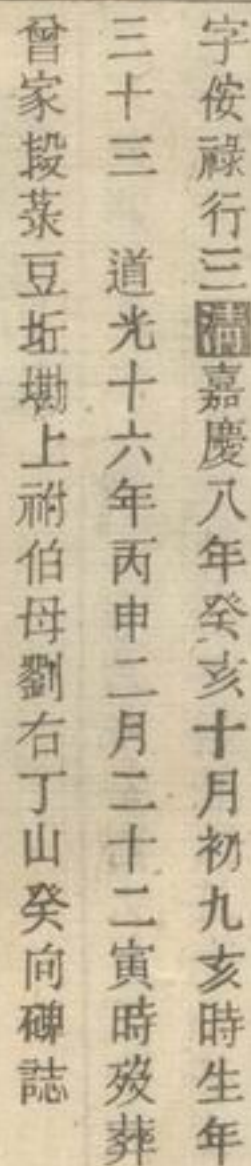 字侒祿行三清嘉慶八年癸亥十月初九亥時生年
三十三　道光十六年丙申二月二十二寅時殁葬
曾家塅菉豆坵墈上祔伯母劉右丁山癸向碑誌